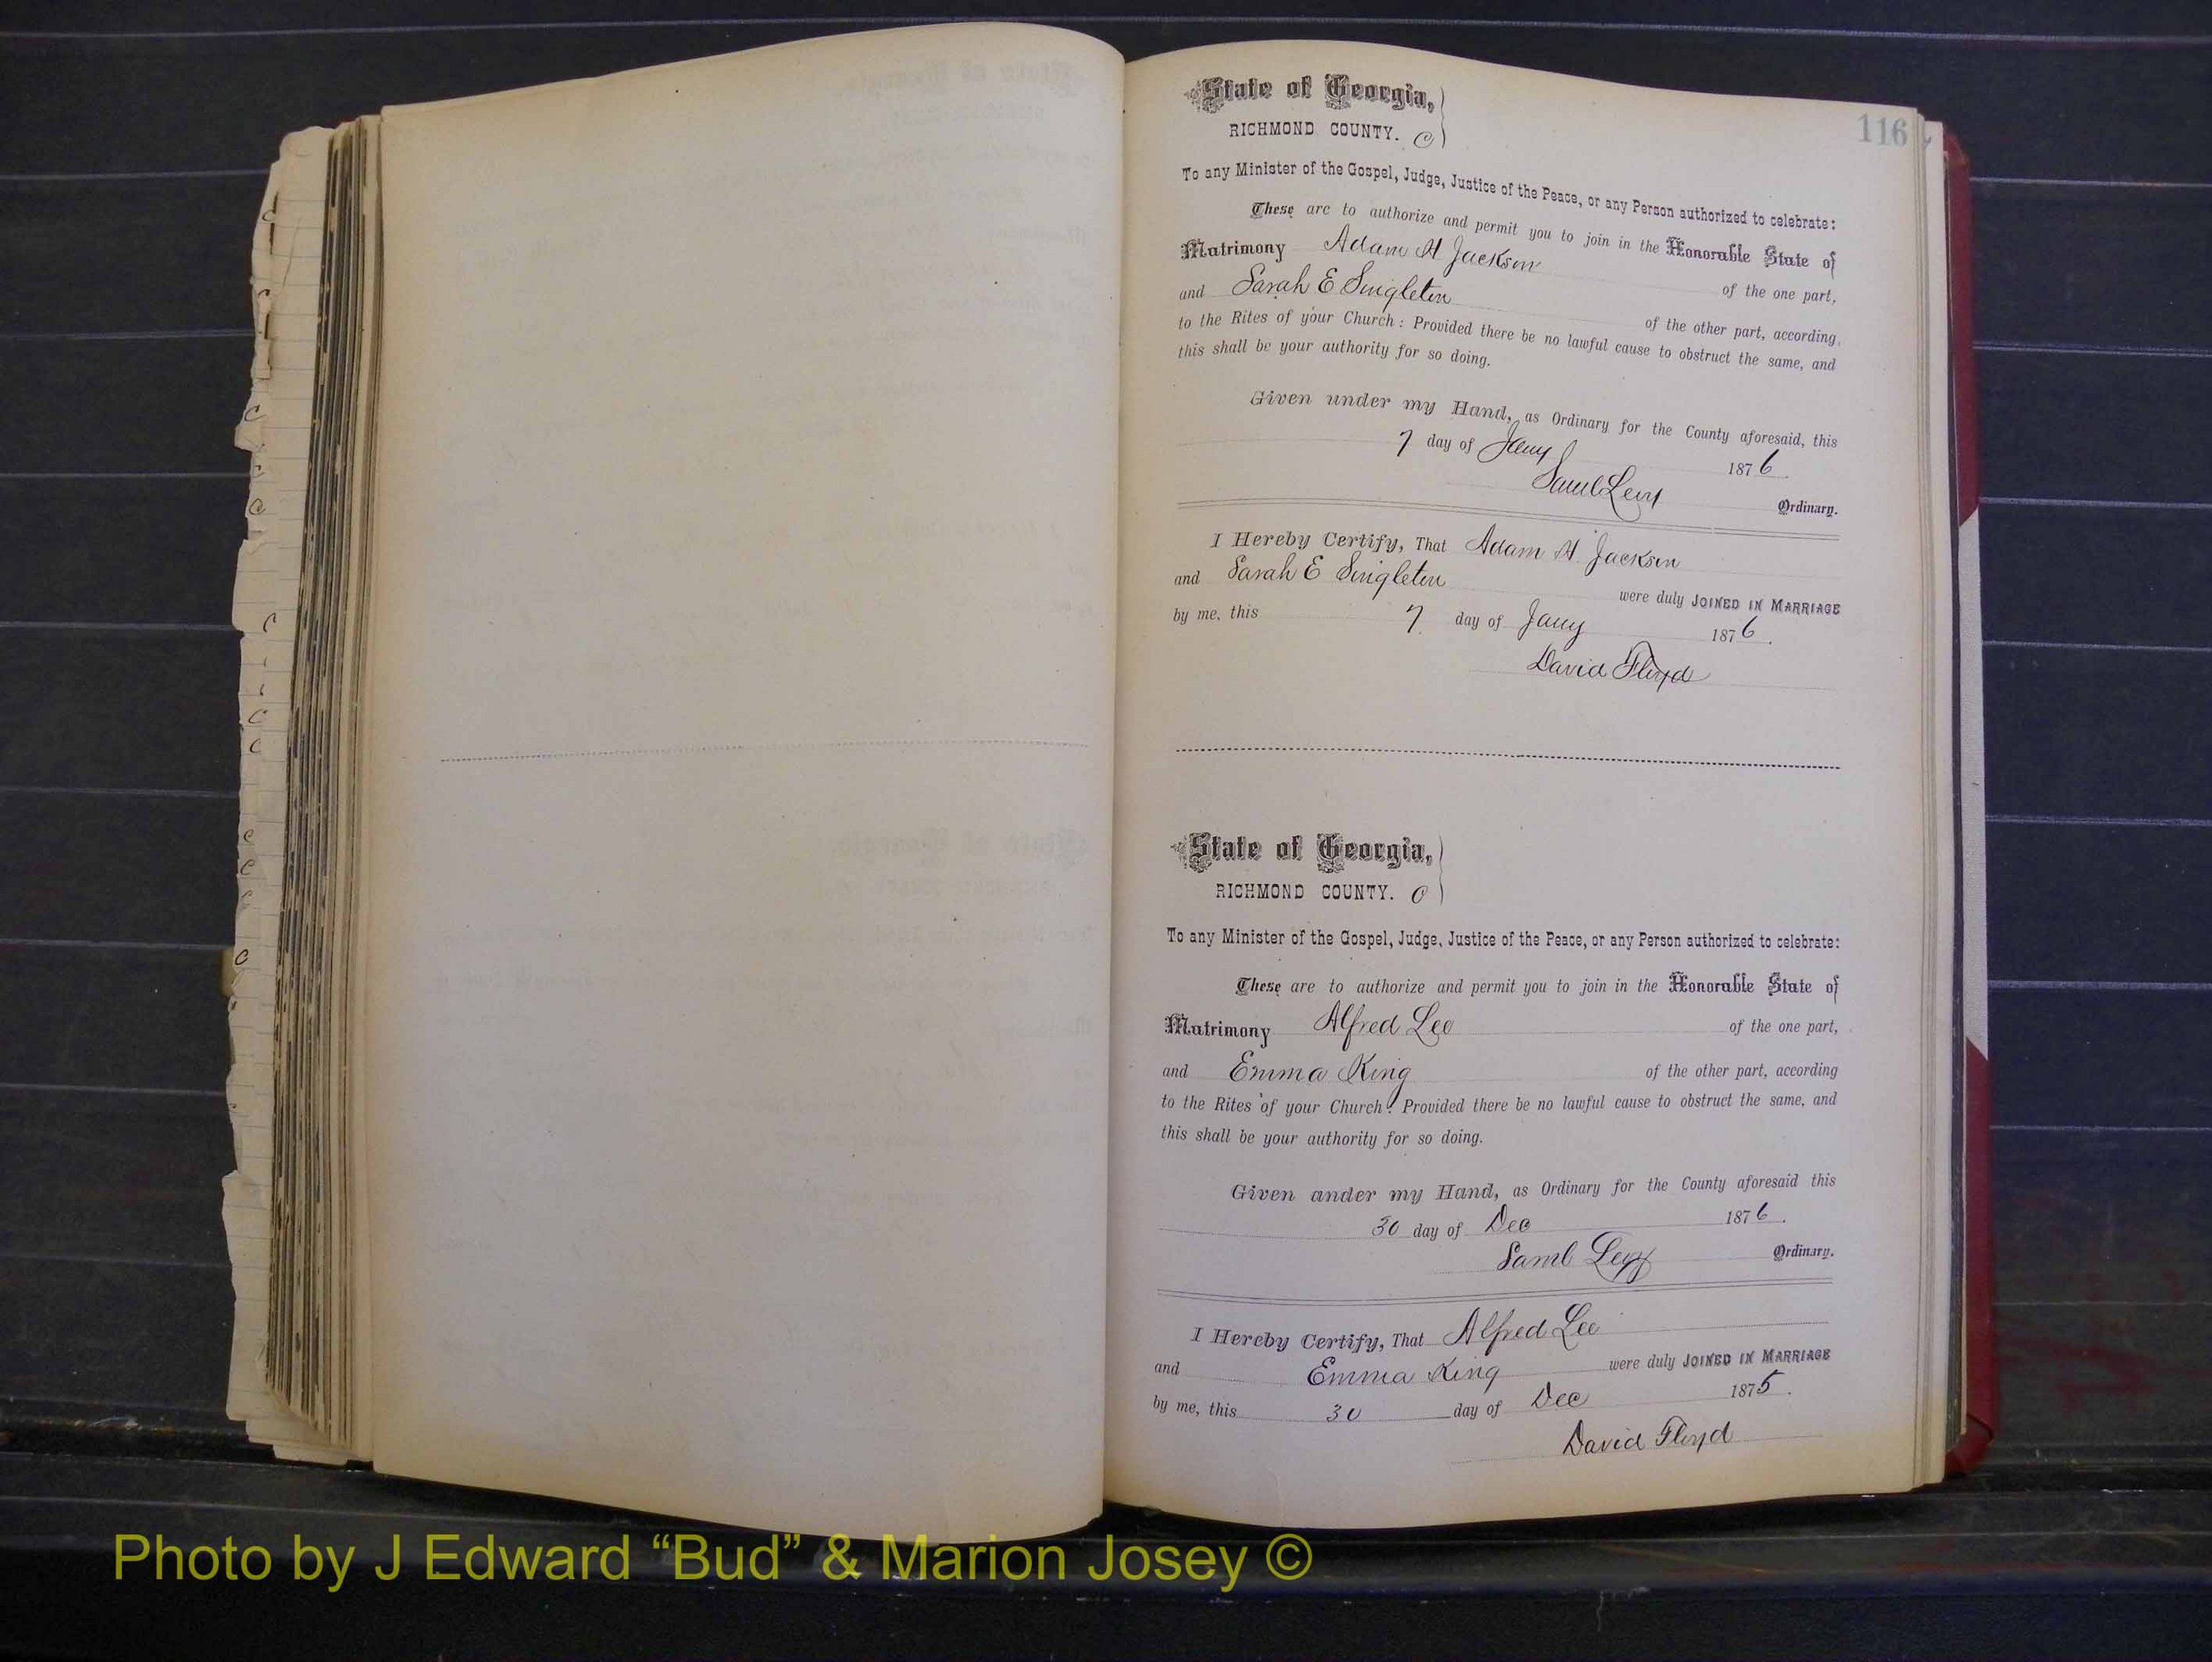 116
State of Georgia,
RICHMOND COUNTY. C
To any Minister of the Gospel, Judge, Justice of the Peace, or any Person authorized to celebrate:
These are to authorize and permit you to join in the Honorable State of
Matrimony Adam H Jackson of the one part,
and Sarah E Singleton of the other part, according
to the Rites of your Church: Provided there be no lawful cause to obstruct the same, and
this shall be your authority for so doing.
Given under my Hand, as Ordinary for the County aforesaid, this
7 day of Jany 1876
Saml Levy Ordinary.
I Hereby Certify, That Adam H. Jackson
and Sarah E Singleton were duly JOINED IN MARRIAGE
by me, this 7 day of Jany 1876.
David Floyd
State of Georgia,
RICHMOND COUNTY. C
To any Minister of the Gospel, Judge, Justice of the Peace, or any Person authorized to celebrate:
These are to authorize and permit you to join in the Honorable State of
Matrimony Alfred Lee of the one part,
and Emma King of the other part, according
to the Rites of your Church: Provided there be no lawful cause to obstruct the same, and
this shall be your authority for so doing.
Given under my Hand, as Ordinary for the County aforesaid this
30 day of Dec 1876.
Saml Levy Ordinary.
I Hereby Certify, That Alfred Lee
and Emma King were duly JOINED IN MARRIAGE
by me, this 30 day of Dec 1875.
David Floyd
Photo by J Edward “Bud” & Marion Josey ©